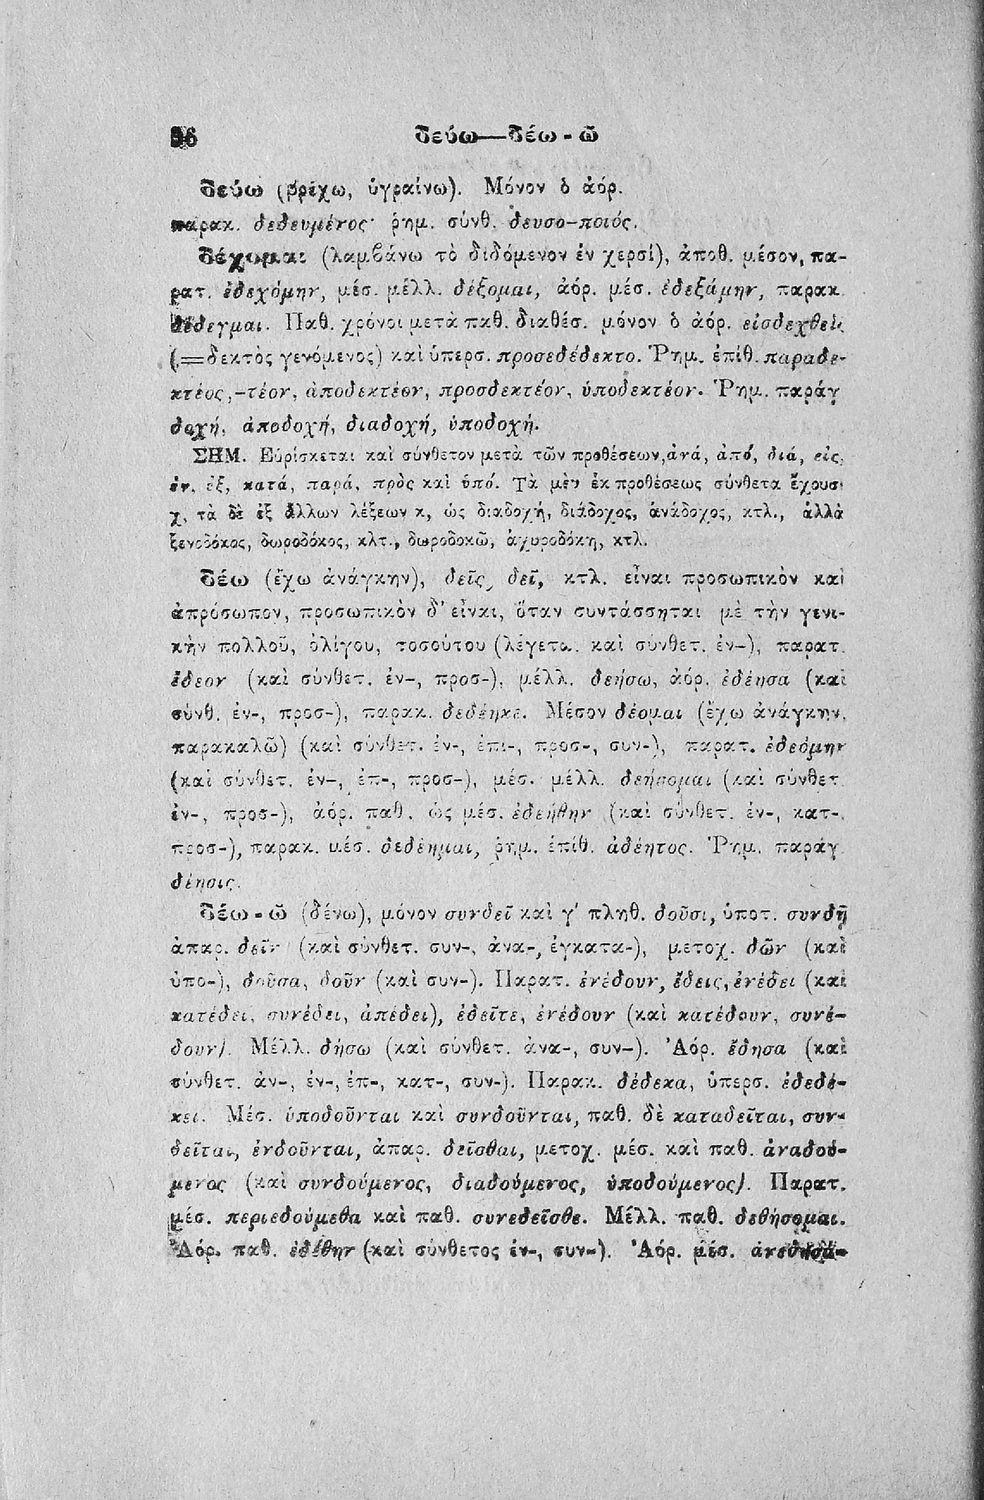 96 δεύω—δέω - ῶ
δεύω (βρέχω, ὑγραίνω). Μόνον ὁ ἀόρ.
παρακ. δεδευμένος· ῥημ. σύνθ. δευσο-ποιός.
δέχομαι (λαμβάνω τὸ διδόμενον ἐν χερσί), ἀποθ. μέσον, πα-
ρατ. ἐδεχόμην, μέσ. μέλλ. δέξομαι, ἀόρ. μέσ. ἐδεξάμην, παρακ.
δέδεγμαι. Παθ. χρόνοι μετὰ παθ. διαθέσ. μόνον ὁ ἀόρ. εἰσδεχθεὶς
(=δεκτὸς γενόμενος) καὶ ὑπερσ. προσεδέδεκτο. Ῥημ. ἐπίθ. παραδε-
κτέος,-τέον, ἀποδεκτέον, προσδεκτέον, ὑποδεκτέον. Ῥημ. παράγ
δοχή, ἀποδοχή, διαδοχή, ὑποδοχή.
ΣΗΜ. Εὑρίσκεται καὶ σύνθετον μετὰ τῶν προθέσεων, ἀνά, ἀπό, διά, εἰς,
ἐν, ἐξ, κατά, παρά, πρὸς καὶ ὑπό. Τὰ μὲν ἐκ προθέσεως σύνθετα ἔχουσι
χ, τὰ δὲ ἐξ ἄλλων λέξεων κ, ὡς διαδοχή, διάδοχος, ἀνάδοχος, κτλ., ἀλλὰ
ξενοδόκος, δωροδόκος, κλτ., δωροδοκῶ, ἀχυροδόκη, κτλ.
δέω (ἔχω ἀνάγκην), δεῖς, δεῖ, κτλ. εἶναι προσωπικὸν καὶ
ἀπρόσωπον, προσωπικὸν δ' εἶναι, ὅταν συντάσσηται μὲ τὴν γενι-
κὴν πολλοῦ, ὀλίγου, τοσούτου (λέγεται καὶ σύνθετ. ἐν-), παρατ.
ἔδεον (καὶ σύνθετ. ἐν-, προσ-), μέλλ. δεήσω, ἀόρ. ἐδέησα (καὶ
σύνθ. ἐν-, προσ-), παρακ. δεδέηκε. Μέσον δέομαι (ἔχω ἀνάγκην,
παρακαλῶ) (καὶ σύνθετ. ἐν-, ἐπι-, προσ-, συν-), παρατ. ἐδεόμην
(καὶ σύνθετ. ἐν-, ἐπ-, προσ-), μέσ. μέλλ. δεήσομαι (καὶ σύνθετ
ἐν-, προσ-), ἀόρ. παθ. ὡς μέσ. ἐδεήθην (καὶ σύνθετ. ἐν-, κατ-,
προσ-), παρακ. μέσ. δεδέημαι, ῥημ. ἐπίθ. ἀδέητος. Ῥημ. παράγ
δέησις.
δέω - ῶ (δένω), μόνον συνδεῖ καὶ γ' πληθ. δοῦσι, ὑποτ. συνδῇ
ἀπαρ. δεῖν (καὶ σύνθετ. συν-, ἀνα-, ἐγκατα-), μετοχ. δῶν (καὶ
ὑπο-), δοῦσα, δοῦν (καὶ συν-). Παρατ. ἐνέδουν, ἔδεις, ἐνέδει (καὶ
κατέδει, συνέδει, ἀπέδει), ἐδεῖτε, ἐνέδουν (καὶ κατέδουν, συνέ-
δουν). Μέλλ. δήσω (καὶ σύνθετ. ἀνα-, συν-). Ἀόρ. ἔδησα (καὶ
σύνθετ. ἀν-, ἐν-, ἐπ-, κατ-, συν-). Παρακ. δέδεκα, ὑπερσ. ἐδεδέ-
κει. Μέσ. ὑποδοῦνται καὶ συνδοῦνται, παθ. δὲ καταδεῖται, συν-
δεῖται, ἐνδοῦνται, ἀπαρ. δεῖσθαι, μετοχ. μέσ. καὶ παθ. ἀναδού-
μενος (καὶ συνδούμενος, διαδούμενος, ὑποδούμενος). Παρατ.
μέσ. περιεδούμεθα καὶ παθ. συνεδεῖσθε. Μέλλ. παθ. δεθήσομαι.
Ἀόρ. παθ. ἐδέθην (καὶ σύνθετος ἐν-, συν-). Ἀόρ. μέσ. ἀνεδησά-